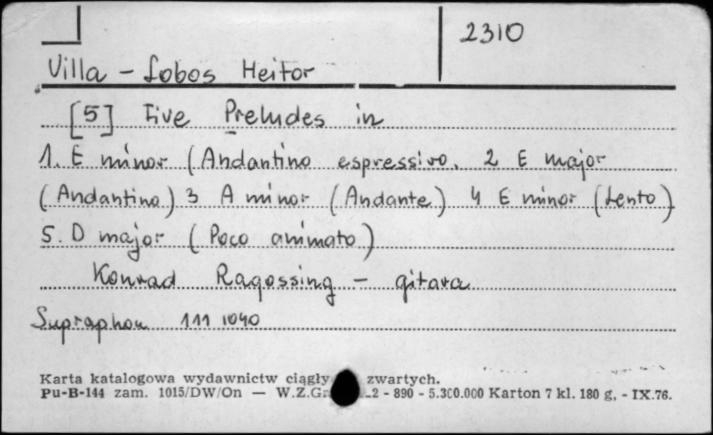 2310
Villa - Lobos Heitor
[5] Five Preludes in
1. E minor (Andantino espressivo. 2 E major
(Andantino) 3 A minor (Andante) 4 E minor (Lento)
5. D major (Poco animato)
Konrad Ragossing - gitara
Supraphon 111 1040
Karta katalogowa wydawnictw ciągły zwartych.
Pu-B-144 zam. 1015/DW/On — W.Z.Gr 2 - 890 - 5.300.000 Karton 7 kl. 180 g. - IX.76.